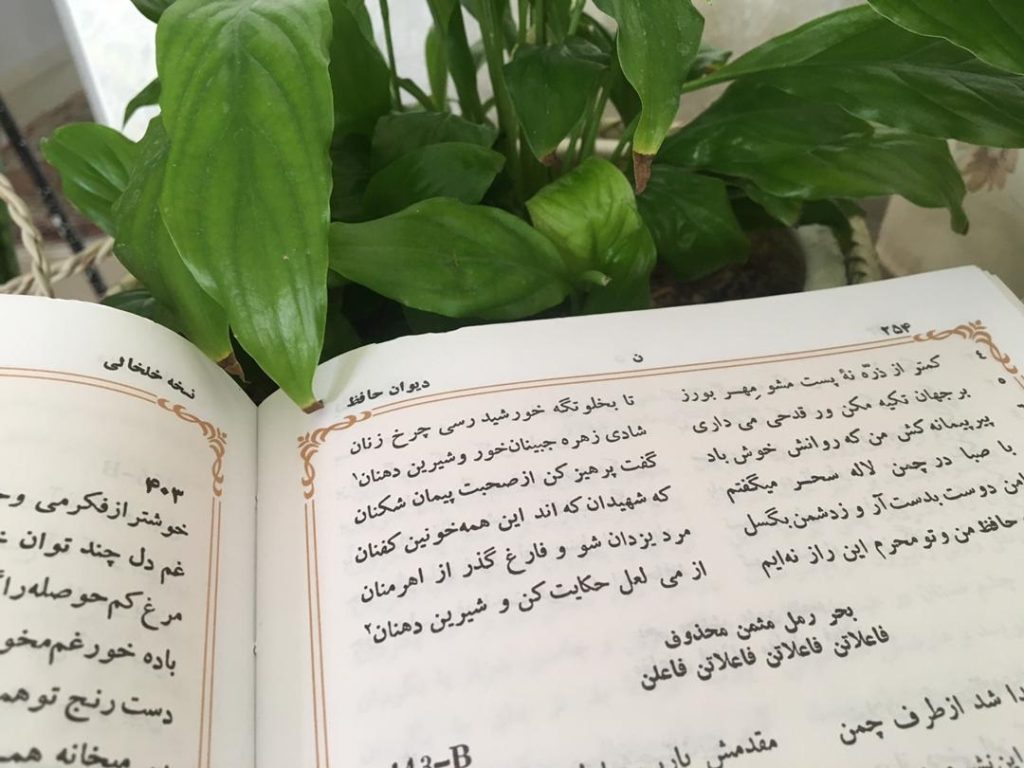 ۲۵۴
ن
دیوان حافظ
۴ کمتر از ذرّه نهٔ پست مشو مِهر بورز تا بخلوتگه خورشید رسی چرخ زنان
۵ بر جهان تکیه مکن ور قدحی می داری شادی زهره جبینان خور و شیرین دهنان!
پیر پیمانه کش من که روانش خوش باد گفت پرهیز کن از صحبت پیمان شکنان
با صبا در چمن لاله سحر میگفتم که شهیدان که اند این همه خونین کفنان
من دوست بدست آر و زدشمن بگسل مرد یزدان شو و فارغ گذر از اهرمنان
حافظ من و تو محرم این راز نه‌ایم از می لعل حکایت کن و شیرین دهنان۲
بحر رمل مثمن محذوف
فاعلاتن فاعلاتن فاعلاتن فاعلن
443-B
شد از طرف چمن مقدمش
نسخه خلخالی
۴۰۳
خوشتر از فکر می و
غم دل چند توان
مرغ کم حوصله را
باده خور غم مخو
دست رنج تو هم
میخانه